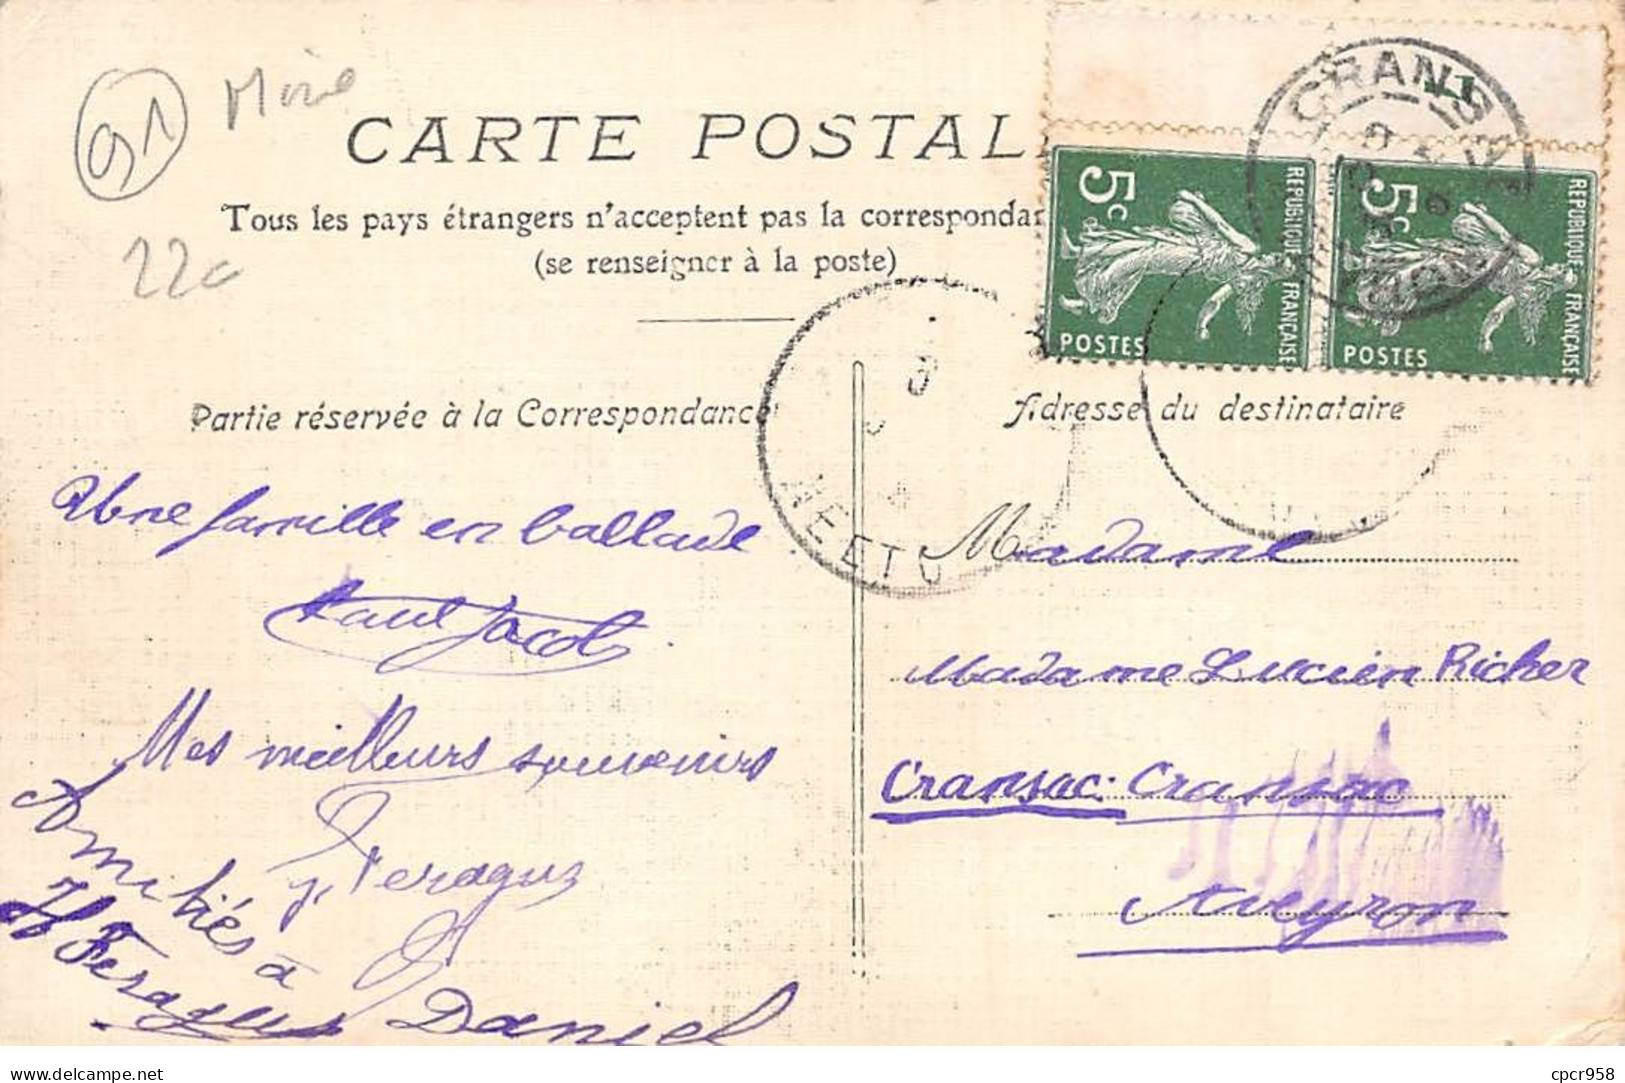 91
22c
CARTE POSTAL
Tous les pays étrangers n'acceptent pas la correspondan
(se renseigner à la poste)
5c
REPUBLIQUE FRANÇAISE
POSTES
5c
REPUBLIQUE FRANÇAISE
POSTES
CRANSAC
ET
Partie réservée à la Correspondance
Adresse du destinataire
Une famille en ballade
Paul Jacob
Mes meilleurs souvenirs
Amitiés à
H Feragus
Daniel
Madame
Madame Lucien Richer
Cransac. Cransac
Aveyron
delcampe.net
cpcr958